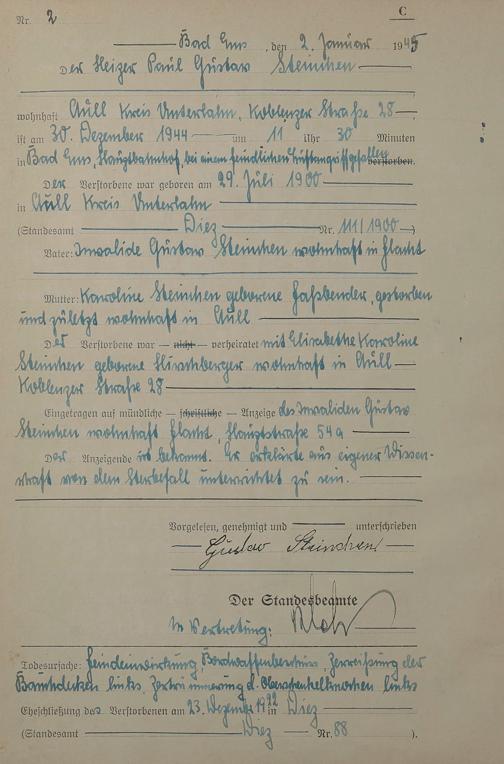 C
Nr. 2
Bad Ems, den 2. Januar 1945
Der Heizer Paul Gustav Steinchen
wohnhaft Aull Kreis Unterlahn, Koblenzer Straße 28
ist am 30. Dezember 1944 um 11 Uhr 30 Minuten
in Bad Ems, Hauptbahnhof, bei einem feindlichen Luftangriff gefallen verstorben.
Der Verstorbene war geboren am 29. Juli 1900
in Aull Kreis Unterlahn
(Standesamt Diez Nr. 111/1900)
Vater: Invalide Gustav Steinchen wohnhaft in Flacht
Mutter: Karoline Steinchen geborene Faßbender, gestorben
und zuletzt wohnhaft in Aull
Der Verstorbene war — nicht — verheiratet mit Elisabethe Karoline
Steinchen geborene Hirschberger wohnhaft in Aull
Koblenzer Straße 28
Eingetragen auf mündliche — schriftliche — Anzeige des Invaliden Gustav
Steinchen wohnhaft Flacht, Hauptstraße 54a
Der Anzeigende ist bekannt. Er erklärte aus eigener Wissen-
schaft von dem Sterbefall unterrichtet zu sein.
Vorgelesen, genehmigt und unterschrieben
Gustav Steinchen
Der Standesbeamte
In Vertretung:
Todesursache: Feindeinwirkung, Bordwaffenbeschuss, Zerreißung der
Bauchdecken links, Zertrümmerung d. Oberschenkelknochen links
Eheschließung des Verstorbenen am 23. Dezember 1922 in Diez
(Standesamt Diez Nr. 88).